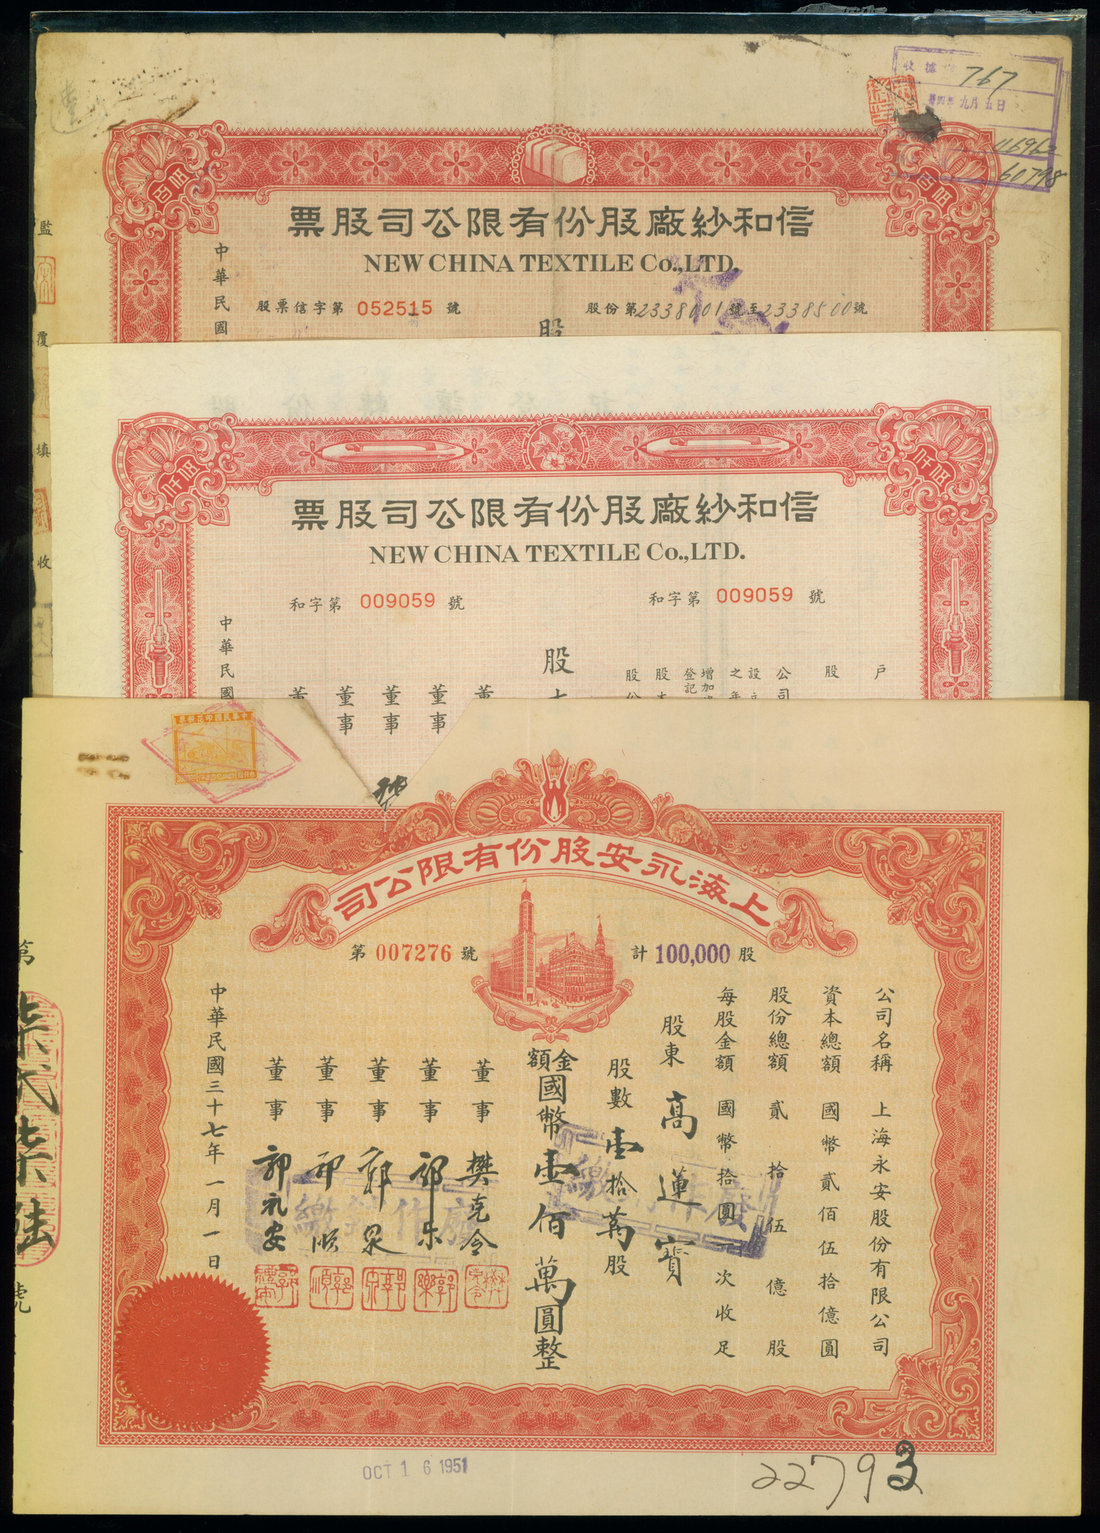 收據
767
卅四年九月五日
60798
伍佰
伍佰
信和紗廠股份有限公司股票
NEW CHINA TEXTILE Co.,LTD.
股票信字第 052515 號
股份第2338001號至2338500號
中華民國
股
監
覆
填
收
仟股
仟股
信和紗廠股份有限公司股票
NEW CHINA TEXTILE Co.,LTD.
和字第 009059 號
和字第 009059 號
戶
股
公司
設立
之年
增加
登記
股本
股份
股
董事
董事
董事
董
中華民國
上海永安股份有限公司
第 007276 號
計 100,000 股
公司名稱 上海永安股份有限公司
資本總額 國幣貳佰伍拾億圓
股份總額 貳拾伍億股
每股金額 國幣拾圓 次收足
股東 高蓮寶
股數壹拾萬股
金額國幣壹佰萬圓整
董事 樊克令
董事 郭乐
董事 郭泉
董事 郭順
董事 郭礼安
中華民國三十七年一月一日
繳銷作廢
繳銷作廢
第柒弍柒陸號
OCT 16 1951
22793